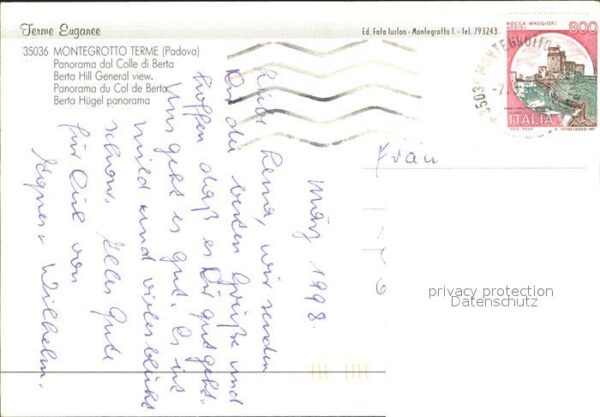 Terme Euganee
Ed. Foto Iurlan - Montegrotto T. - Tel. 793243
35036 MONTEGROTTO TERME (Padova)
Panorama dal Colle di Berta
Berta Hill General view.
Panorama du Col de Berta
Berta Hügel panorama
ROCCA MAGGIORE
ASSISI
800
ITALIA
35036 MONTEGROTTO
Frau
März 1998.
Liebe Rena, wir senden
Dir die besten Grüße und
hoffen daß es Dir gut geht.
Uns geht es gut. Es ist
mild und vieles blüht
schon. Alles Gute
für Dich von
Agnes + Wilhelm.
privacy protection
Datenschutz